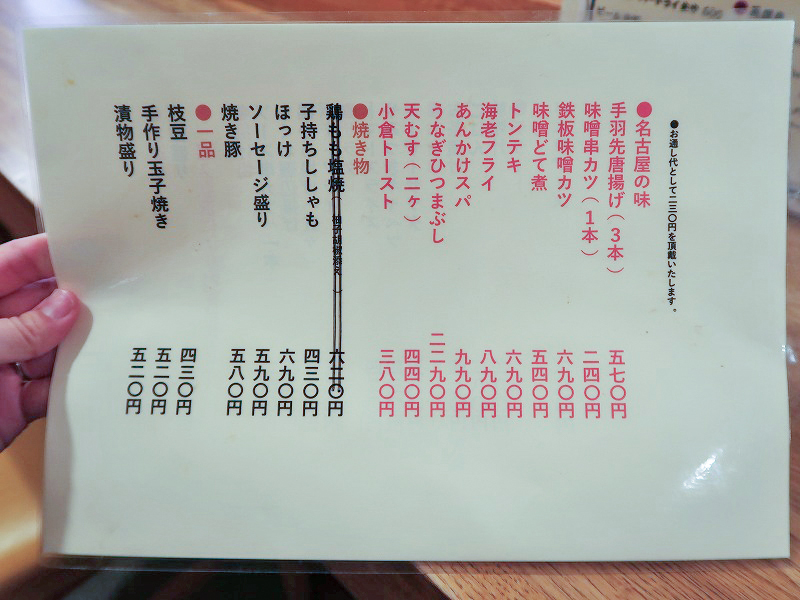 ●お通し代として二三〇円を頂戴いたします。
●名古屋の味
手羽先唐揚げ(3本) 五七〇円
味噌串カツ(1本) 二四〇円
鉄板味噌カツ 六九〇円
味噌どて煮 五四〇円
トンテキ 六九〇円
海老フライ 八九〇円
あんかけスパ 九九〇円
うなぎひつまぶし 二二九〇円
天むす(二ヶ) 四四〇円
小倉トースト 三八〇円
●焼き物
鶏もも塩焼 六二〇円
子持ちししゃも 四三〇円
ほっけ 六九〇円
ソーセージ盛り 五九〇円
焼き豚 五八〇円
●一品
枝豆 四三〇円
手作り玉子焼き 五二〇円
漬物盛り 五二〇円